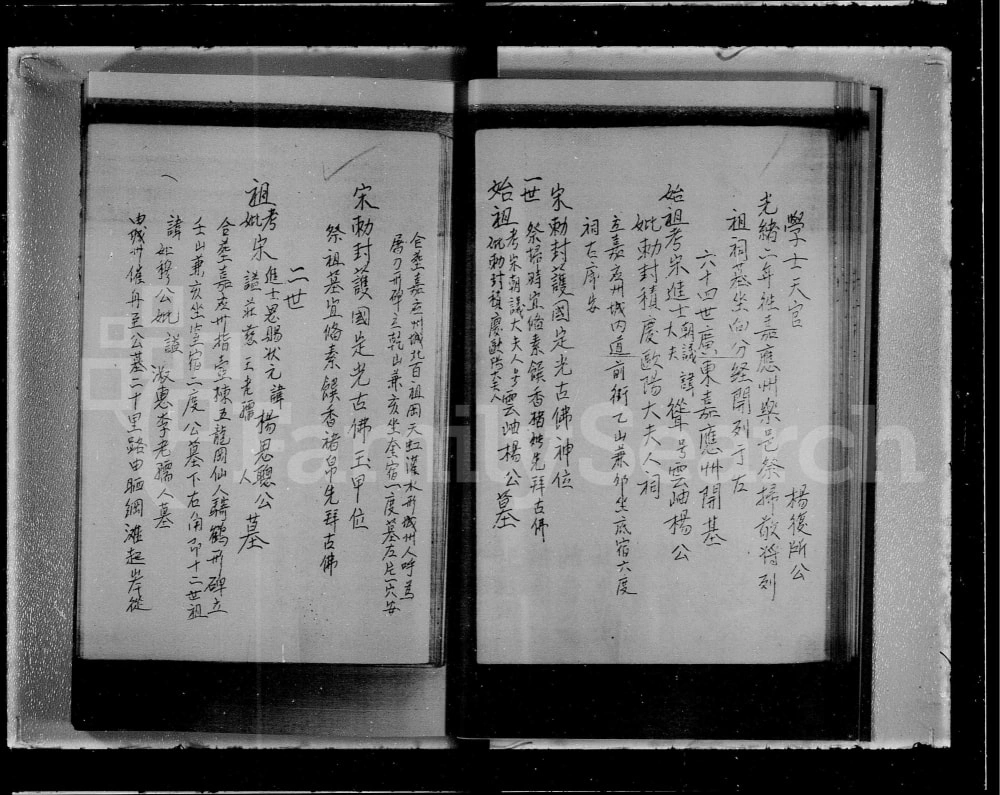 學士天官 楊復所公
光緒二年往嘉應州與邑祭掃敬將列
祖祠墓坐向分経開列于左
六十四世廣東嘉應州開基
始祖考宋進士朝議大夫諱聳号雲岫楊公
妣勅封積慶歐陽大夫人祠
立嘉应州城内道前街乙山兼卯坐底宿六度
祠左席安
宋勅封護國定光古佛神位
一世 祭掃時宜俻素饌香楮神先拜古佛
始祖考宋朝議大夫人号雲岫楊公墓
妣勅封積慶歐陽大夫人
合塟嘉应州城北百祖岡天虹濱水形城州人呼為
屠刀形碑立乾山兼亥坐奎宿一度墓左片一穴安
宋勅封護國定光古佛玉甲位
祭祖墓宜俻素饌香楮帛先拜古佛
二世
祖考宋進士恩賜狀元諱楊恩聰公墓
妣 謚莊慈王老孺人
合塟嘉应州指壹棟五龍岡仙人騎鶴形碑立
壬山兼亥坐室宿二度公墓下右角即十二世祖
諱如穆公妣謚淑惠李老孺人墓
由城州催舟至公墓二十里路由晒網灘起岸從
FamilySearch